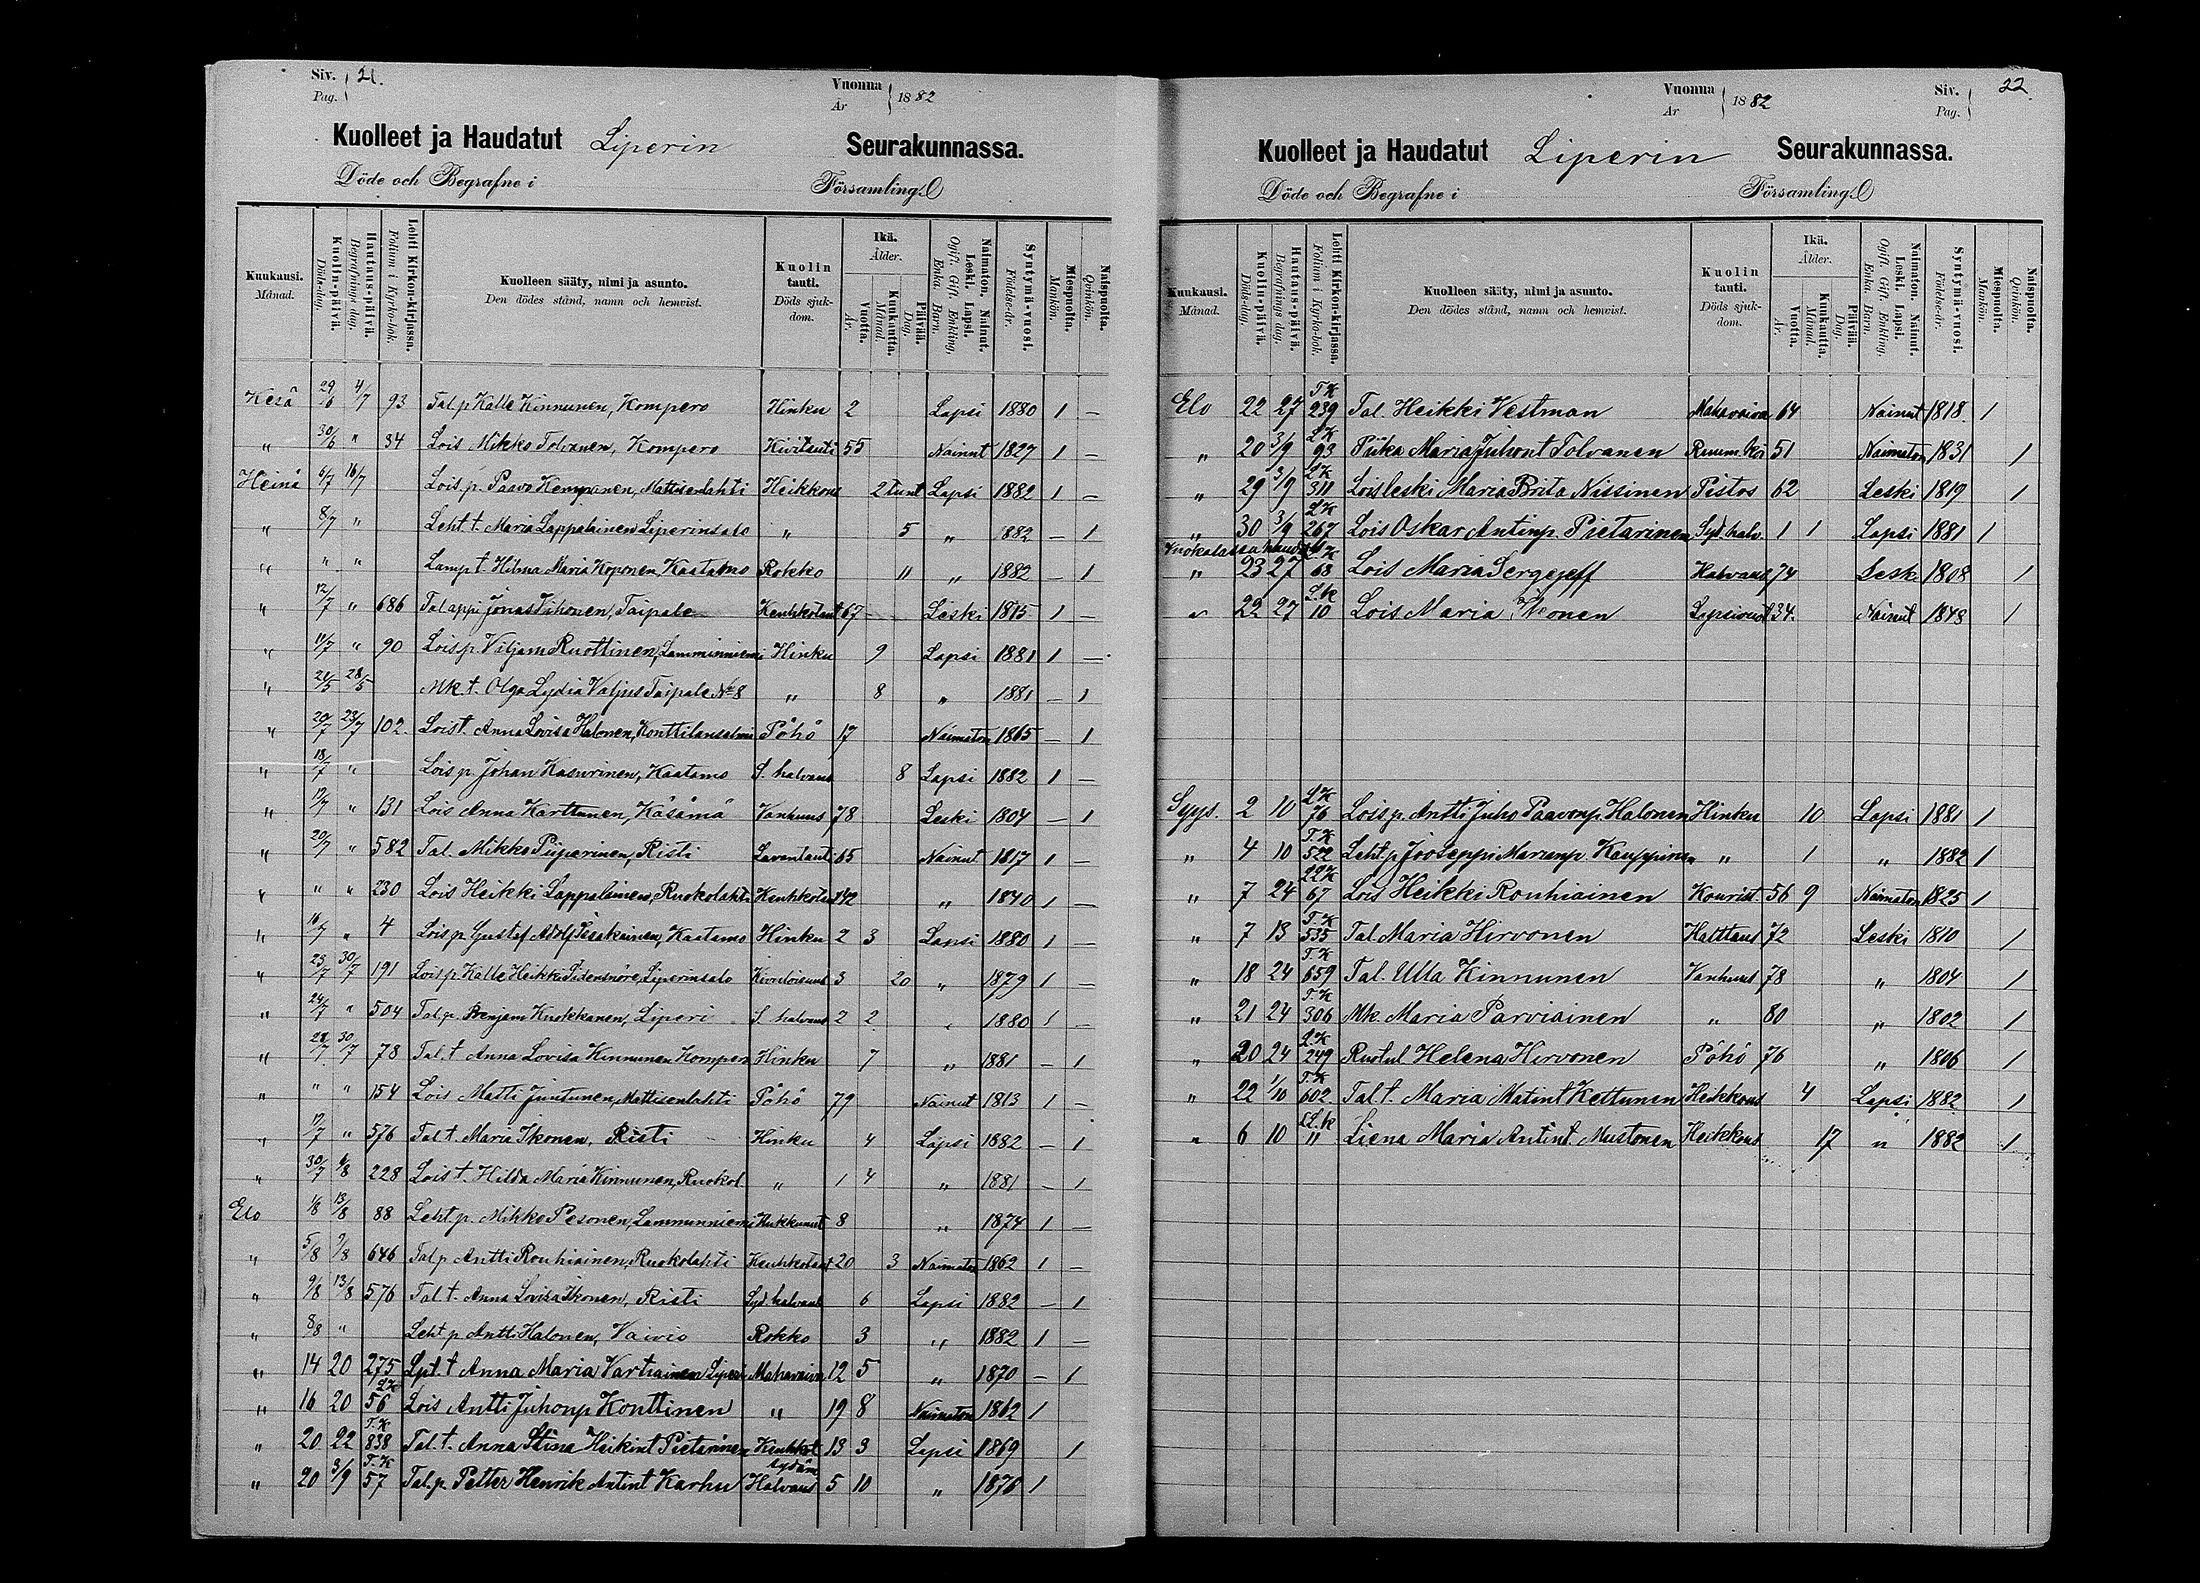 Siv. Pag. 21.
Vuonna År 1882
Kuolleet ja Haudatut Liperin Seurakunnassa.
Döde och Begrafne i Församling.
Kuukausi. Månad.
Kuolin-päivä. Döds-dag.
Hautaus-päivä. Begrafnings dag.
Lehti Kirkon-kirjassa. Folium i Kyrko-bok.
Kuolleen sääty, nimi ja asunto. Den dödes stånd, namn och hemvist.
Kuolin tauti. Döds sjukdom.
Ikä. Ålder.
Vuotta. År.
Kuukautta. Månad.
Päivää. Dag.
Naimaton. Nainut. Leski. Lapsi. Ogift. Gift. Enkling. Enka. Barn.
Syntymä-vuosi. Födelse-år.
Miespuolta. Mankön.
Naispuolta. Qvinkön.
Kesä 29/6 4/7 93 Tal.p. Kalle Kinnunen, Kompero Hinku 2 Lapsi 1880 1 —
" 30/6 " 34 Lois Mikko Tolvanen, Kompero Kivitauti 55 Nainut 1827 1 —
Heinä 6/7 16/7 Lois p. Paavo Kemppinen, Mattisenlahti Heikkous 2 tunt Lapsi 1882 1 —
" 8/7 " Leht. t. Maria Lappalainen Liperinsalo " 5 " 1882 — 1
" " " Lamp t. Hilma Maria Koponen, Kaatamo Rokko 11 " 1882 — 1
" 12/7 " 686 Tal appi Jonas Tihonen, Taipale Keuhkotaut 67 Leski 1815 1 —
" 11/7 " 90 Lois p. Viljam Ruottinen, Lamminniemi Hinku 9 Lapsi 1881 1 —
" 21/5 28/5 Mk. t. Olga Lydia Valjus Taipale No 8 " 8 " 1881 — 1
" 20/7 23/7 102. Lois t. Anna Lovisa Halonen, Konttilansalmi Pöhö 17 Naimaton 1865 — 1
" 18/7 " Lois p. Johan Kasurinen, Kaatamo S. halvaus 8 Lapsi 1882 1 —
" 17/7 " 131 Lois Anna Karttunen, Käsämä Vanhuus 78 Leski 1804 — 1
" 20/7 " 582 Tal. Mikko Piiparinen, Risti Lavantauti 65 Nainut 1817 1 —
" " " 230 Lois Heikki Lappalainen, Ruokolahti Keuhkotaut 42 " 1840 1 —
" 16/7 " 4 Lois p Gustaf Adolf Pesakainen, Kaatamo Hinku 2 3 Lapsi 1880 1 —
" 23/7 30/7 191 Lois p. Kalle Heikki, Liperinsalo 3 20 " 1879 1 —
" 24/7 " 504 Tal.p. Benjam Kuokkanen, Liperi S. halvaus 2 2 " 1880 1 —
" 28/7 30/7 78 Tal. t Anna Lovisa Kinnunen Kompero Hinku 7 " 1881 — 1
" " " 154 Lois Matti Juntunen, Mattisenlahti Pöhö 79 Nainut 1813 1 —
" 17/7 " 576 Tal t. Maria Ikonen, Risti Hinku 4 Lapsi 1882 — 1
" 30/7 6/8 228 Lois t. Hilda Maria Kinnunen, Ruokol. " 1 4 " 1881 — 1
Elo 1/8 13/8 88 Leht. p. Mikko Pesonen, Lamminniemi Hukkunut 8 " 1874 1 —
" 5/8 7/8 646 Tal p Antti Rouhiainen, Ruokolahti Keuhkotaut 20 3 Naimaton 1862 1 —
" 9/8 13/8 576 Tal t. Anna Lovisa Ikonen, Risti Syd. halvaus 6 Lapsi 1882 — 1
" 8/8 " Leht. p Antti Halonen, Vaivio Rokko 3 " 1882 1 —
" 14 20 275 Spt. t Anna Maria Vartiainen Liperi Mahavaiva 12 5 " 1870 — 1
" 16 20 L.K 56 Lois Antti Juhonp Konttinen " 19 8 Naimaton 1862 1
" 20 22 T.K 838 Tal. t. Anna Stina Heikint Pietarinen Keuhkot 13 3 Lapsi 1869 1
" 20 3/9 T.K 57 Tal.p. Petter Henrik Antint Karhu sydäm Halvaus 5 10 " 1876 1
Vuonna År 1882
Siv. Pag. 22.
Kuolleet ja Haudatut Liperin Seurakunnassa.
Döde och Begrafne i Församling.
Kuukausi. Månad.
Kuolin-päivä. Döds-dag.
Hautaus-päivä. Begrafnings dag.
Lehti Kirkon-kirjassa. Folium i Kyrko-bok.
Kuolleen sääty, nimi ja asunto. Den dödes stånd, namn och hemvist.
Kuolin tauti. Döds sjukdom.
Ikä. Ålder.
Vuotta. År.
Kuukautta. Månad.
Päivää. Dag.
Naimaton. Nainut. Leski. Lapsi. Ogift. Gift. Enkling. Enka. Barn.
Syntymä-vuosi. Födelse-år.
Miespuolta. Mankön.
Naispuolta. Qvinkön.
Elo 22 27 T.K 239 Tal. Heikki Vestman Mahavaiva 64 Nainut 1818. 1
" 20 3/9 L.K 93 Piika Maria Juhont Tolvanen 51 Naimaton 1831 1
" 29 3/9 L.K 311 Lois leski Maria Brita Nissinen Pistos 62 Leski 1819 1
" 30 3/9 L.K 267 Lois Oskar Antinp. Pietarinen Syd. halv. 1 1 Lapsi 1881 1
Kuokalassa haudat
" 23 27 L.K 63 Lois Maria Sergejeff Halvaus 74 Leski 1808 1
" 22 27 L.K 10 Lois Maria Ikonen Lapsivuot 34. Nainut 1848 1
Syys. 2 10 L.K 76 Lois p. Antti Juho Paavonp. Halonen Hinku 10 Lapsi 1881 1
" 4 10 T.K 522 Leht. p Jooseppi Marianp. Kauppinen " 1 " 1882 1
" 7 24 LLK 67 Lois Heikki Rouhiainen Kourist. 56 9 Naimaton 1825 1
" 7 13 T.K 535 Tal. Maria Hirvonen Halttaus 72 Leski 1810 1
" 18 24 T.K 659 Tal. Ulla Kinnunen Vanhuus 78 " 1804 1
" 21 24 T.K 306 Mk. Maria Parviainen " 80 " 1802 1
" 20 24 L.K 249 Ruotul Helena Hirvonen Pöhö 76 " 1806 1
" 22 1/10 T.K 602 Tal t. Maria Matint Kettunen Heikkous 4 Lapsi 1882 1
" 6 10 LL.K " Liena Maria Antint. Mustonen Heikkous 17 " 1882 1